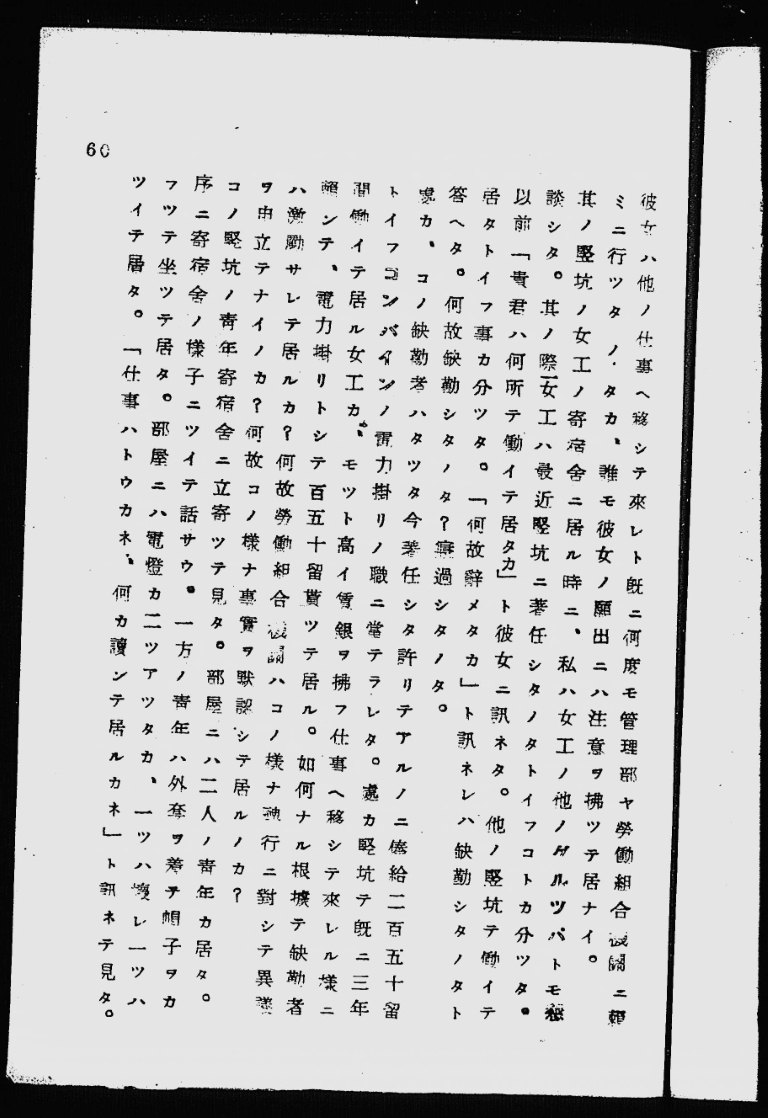 60
彼女ハ他ノ仕事ヘ移シテ來レト既ニ何度モ管理部ヤ勞働組合機關ニ賴
ミニ行ツタノタカ、誰モ彼女ノ願出ニハ注意ヲ拂ツテ居ナイ。
其ノ竪坑ノ女工ノ寄宿舍ニ居ル時ニ、私ハ女工ノ他ノグルツパトモ懇
談シタ。其ノ際一女工ハ最近竪坑ニ著任シタノタトイフコトカ分ツタ。
以前「貴君ハ何所テ働イテ居タカ」ト彼女ニ訊ネタ。他ノ竪坑テ働イテ
居タトイフ事カ分ツタ。「何故辭メタカ」ト訊ネレハ缺勤シタノタト
答ヘタ。何故缺勤シタノタ?寢過シタノタ。
處カ、コノ缺勤者ハタツタ今著任シタ許リテアルノニ俸給二百五十留
トイフコンバインノ電力掛リノ職ニ當テラレタ。處カ竪坑テ既ニ三年
間働イテ居ル女工カ、モツト高イ賃銀ヲ拂フ仕事ヘ移シテ來レル樣ニ
賴ンテ、電力掛リトシテ百五十留貰ツテ居ル。如何ナル根據テ缺勤者
ハ激勵サレテ居ルカ?何故勞働組合機關ハコノ樣ナ行ニ對シテ異議
ヲ申立テナイノカ?何故コノ樣ナ事實ヲ默認シテ居ルノカ?
コノ竪坑ノ靑年寄宿舍ニ立寄ツテ見タ。部屋ニハ二人ノ靑年カ居タ。
序ニ寄宿舍ノ樣子ニツイテ話サウ。一方ノ靑年ハ外套ヲ着テ帽子ヲカ
フツテ坐ツテ居タ。部屋ニハ電燈カ二ツアツタカ、一ツハ壞レ一ツハ
ツイテ居タ。「仕事ハトウカネ、何カ讀ンテ居ルカネ」ト訊ネテ見タ。